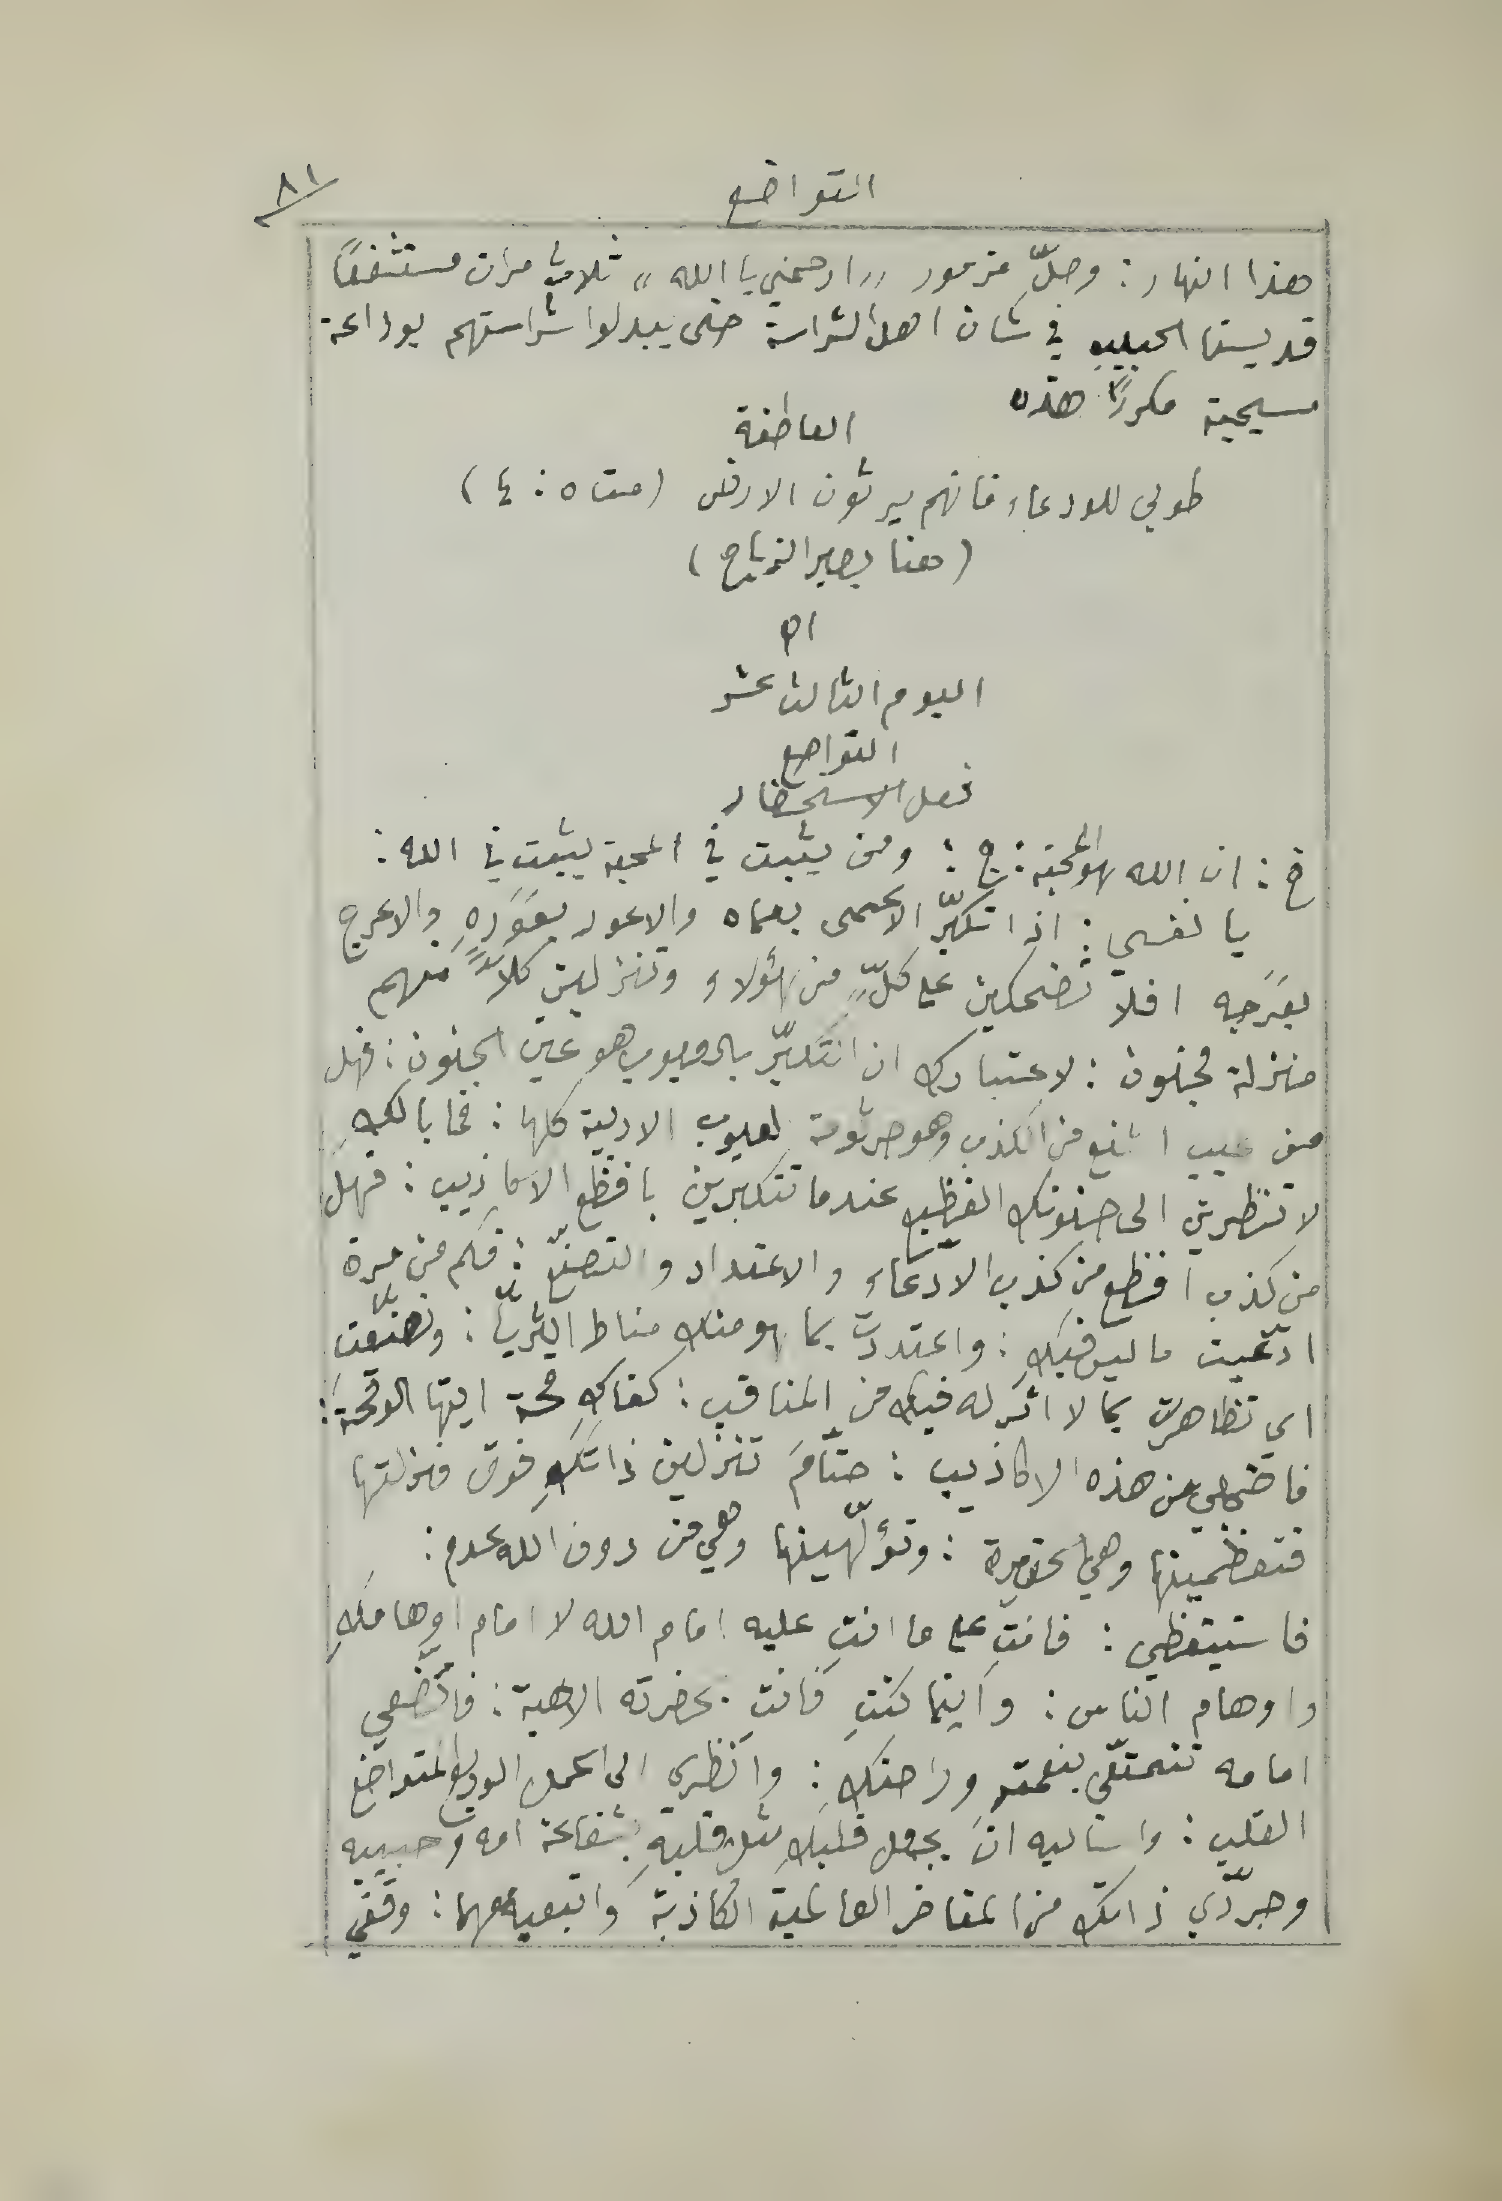 التواضع
٨١
هذا النهار : وصلِّ مزمور ,, ارحمني يا الله ,, ثلاث مرات مستشفعًا
قديسنا الحبيب في شان اهل الشراسة حتى يبدلوا شراستهم بوداعة
مسيحية مكررًا هذه
العاطفة
طوبى للودعاء فانهم يرثون الارض (مت ٥ : ٤ )
(هنا يصير الزياح )
اليوم الثالث عشر
التواضع
فعل الاستحضار
خ : ان الله هو المحبة : ج : ومن يثبت في المحبة يثبت في الله :
يا نفسي : اذا تكبّر الاعمى بعماه والاعور بعَوَرَهِ والاعرج
بعَرَجِه افلا تضحكين على كلٍّ من هٰؤلاء وتنزلين كلاًّ منهم
منزلة مجنون : لاعتبارك ان التكبّر بالعيوب هو عين الجنون : فهل
من عيب اشنع من الكذب وهو جرثومة لعيوب الادبية كلها : فما بالكِ
لا تنظرين الى جنونك الفظيع عندما تتكبرين بافظع الاكاذيب : فهل
من كذب افظع من كذب الادّعاء والاعتداد والتصنّع : فكم من مرة
ادّعيت ما ليس فيكِ : واعتددتِ بما هو منك مناط الثريّا : وتصنّعتِ
اي تظاهرتِ بما لا اثر له فيك من المناقب : كفاكِ قحة ايتها الوقحة :
فاخجلي من هذه الاكاذيب : حتّامَ تنزلين ذاتَكِ فوق منزلتها
فتعظّمينها وهي الحقيرة : وتؤلّهينها وهي من دون الله عدم :
فاستيقظي : فانتِ على ما انتِ عليه امام الله لا امام اوهامكِ
واوهام الناس : واينما كنتِ فانتِ بحضرته الالهية : فاتّضعي
امامه تتمتّعي بنعمته وراحتكِ : وانظري الى الحمل الوديع المتواضع
القلب : واساليه ان يجعل قلبَكِ مثل قلبهِ بشفاعة امه وحبيبه
وجرّدي ذاتك من المفاخر العالمية الكاذبة واتبعيهما : وقفي